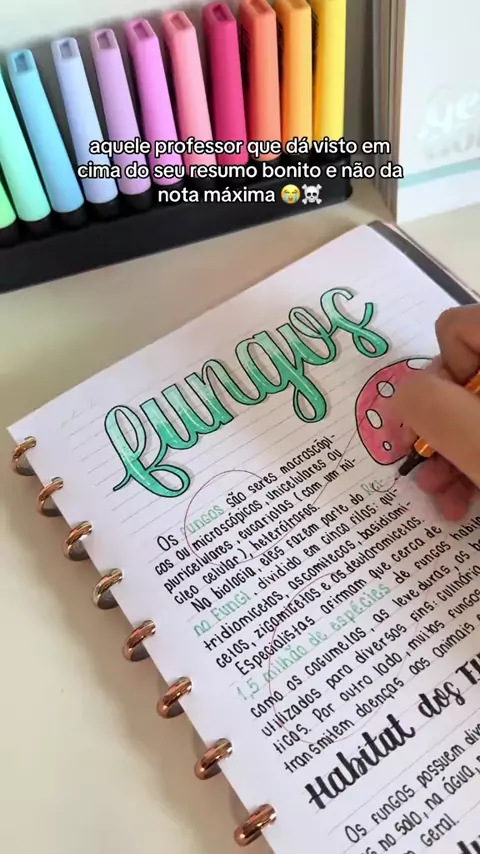 aquele professor que dá visto em
cima do seu resumo bonito e não da
nota máxima 😭☠️
fungos
Os fungos são seres macroscópi-
cos ou microscópicos unicelulares ou
pluricelulares, eucariotas (com um nú-
cleo celular), heterótrofos.
Na biologia, eles fazem parte do Rei-
no Fungi, dividido em cinco filos: qui-
tridiomicetos, ascomicetos, basidiomi-
cetos, zigomicetos e os deuteromicetos.
Especialistas afirmam que cerca de
1,5 milhão de espécies de fungos habi
como os cogumelos, as leveduras, os
utilizados para diversos fins: culinário
ticos. Por outro lado, muitos fungos
transmitem doenças aos animais e
Habitat dos
Os fungos possuem div
s no solo, na água,
em geral.